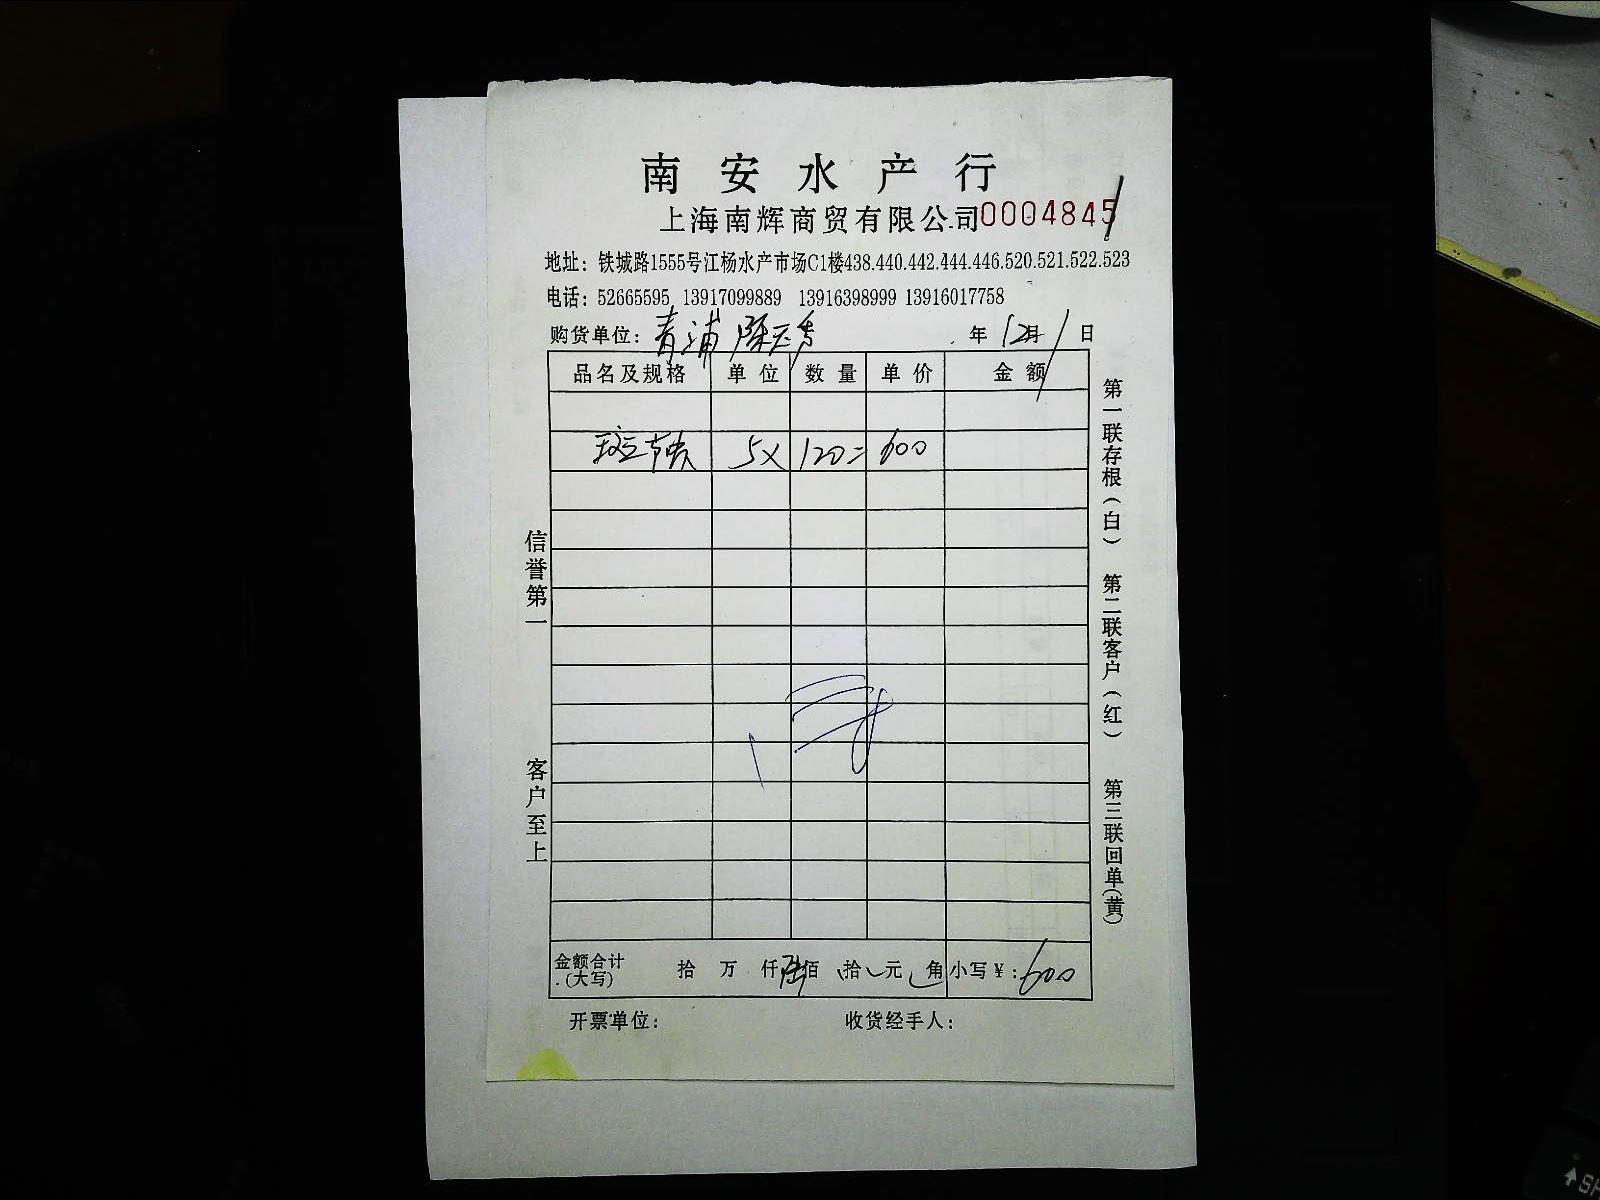 南安水产行
上海南辉商贸有限公司 0004845
地址：铁城路1555号江杨水产市场C1楼438.440.442.444.446.520.521.522.523
电话：52665595 13917099889 13916398999 13916017758
购货单位：青浦 年12月1日
品名及规格 单位 数量 单价 金额
斑节 5× 120= 600
金额合计(大写) 拾 万 仟陆佰 拾 元 角 小写￥：600
开票单位： 收货经手人：
信誉第一 客户至上
第一联存根(白) 第二联客户(红) 第三联回单(黄)